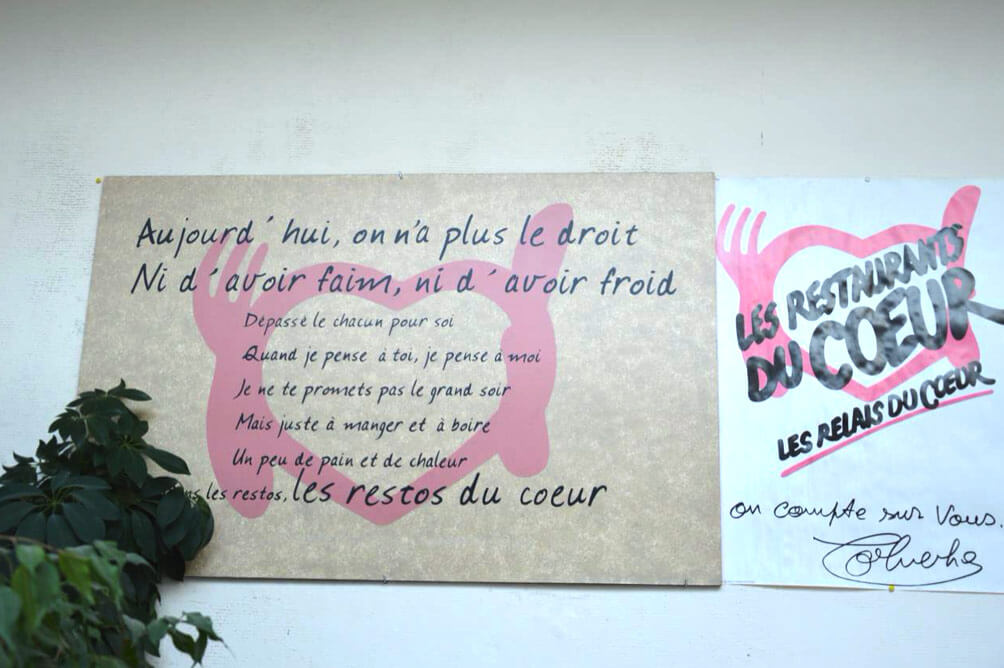 Aujourd'hui, on n'a plus le droit
Ni d'avoir faim, ni d'avoir froid
Dépasse le chacun pour soi
Quand je pense à toi, je pense à moi
Je ne te promets pas le grand soir
Mais juste à manger et à boire
Un peu de pain et de chaleur
les restos, les restos du coeur
LES RESTAURANTS
DU COEUR
LES RELAIS DU COEUR
on compte sur vous.